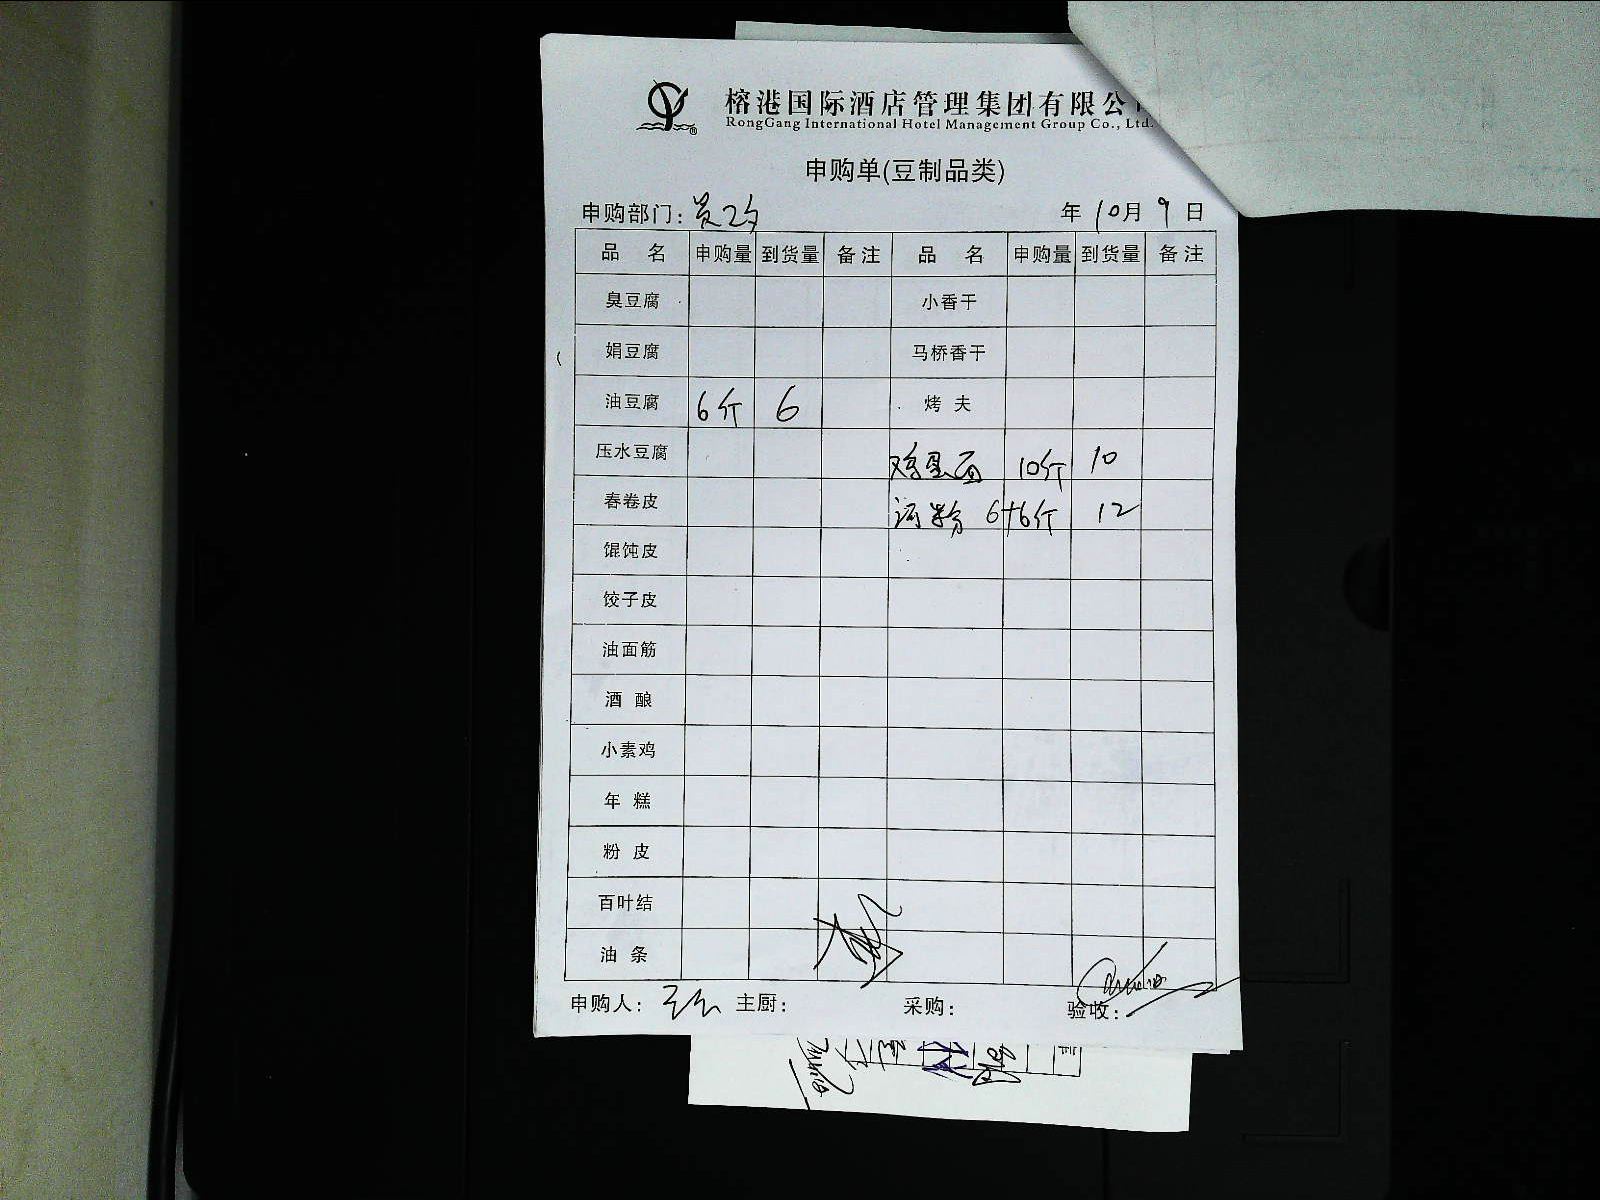 榕港国际酒店管理集团有限公
RongGang International Hotel Management Group Co., Ltd.
申购单(豆制品类)
申购部门: 年 10 月 9 日
品 名 申购量 到货量 备注 品 名 申购量 到货量 备注
臭豆腐 小香干
娟豆腐 马桥香干
油豆腐 6斤 6 烤 夫
压水豆腐 鸡蛋面 10斤 10
春卷皮 河粉 6+6斤 12
馄饨皮
饺子皮
油面筋
酒 酿
小素鸡
年 糕
粉 皮
百叶结
油 条
申购人: 主厨: 采购: 验收: